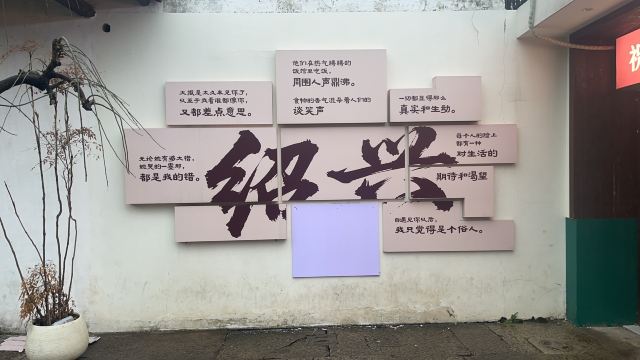 大概是太久未见你了，
以至于我看谁都像你，
又都差点意思。
他们在热气腾腾的
饭馆里吃饭，
周围人声鼎沸。
食物的香气混杂着人们的
谈笑声
一切都显得那么
真实和生动。
无论她有多大错，
她哭的一塌糊，
都是我的错。
绍兴
每个人的脸上
都有一种
对生活的
期待和渴望
自遇见你以后，
我只觉得是个俗人。